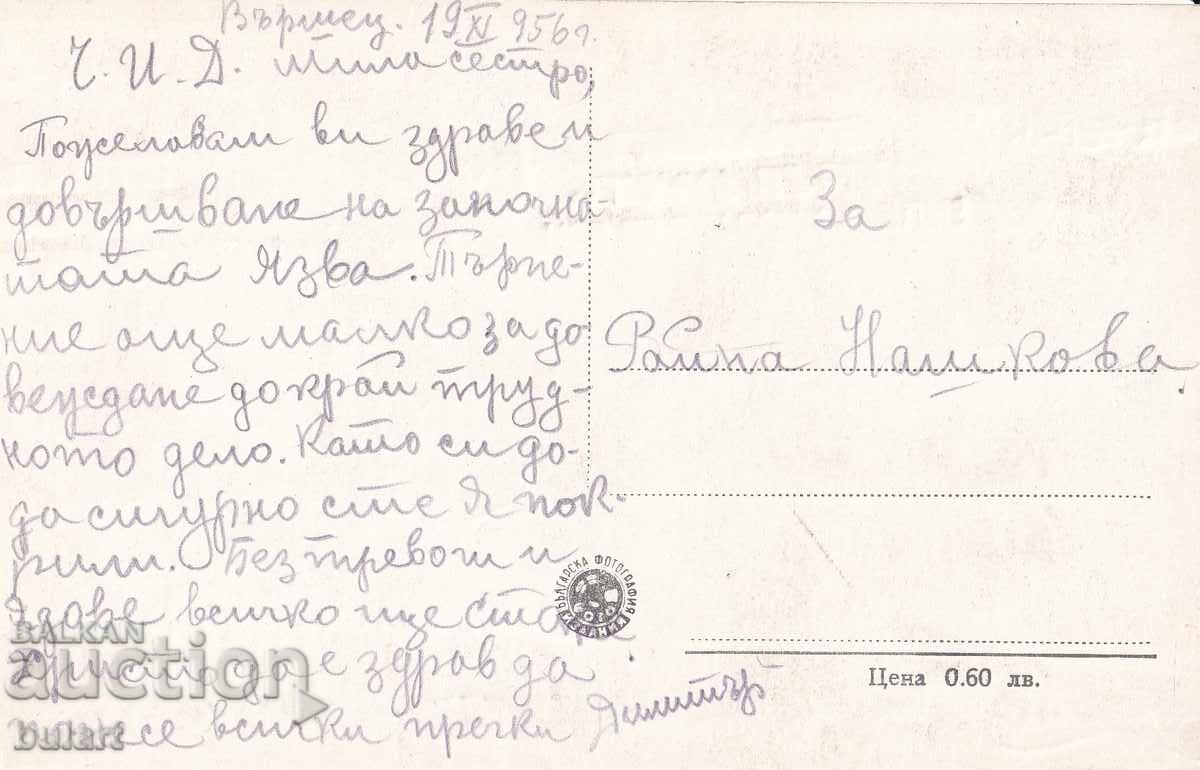 Вършец. 19 XI 956 г.
Ч. И. Д. Мила сестро,
Пожелавам ви здраве и
довършване на започна-
тата язва. Търпе-
ние още малко за до
веждане докрай труд-
ното дело. Като си до-
да сигурно сте я пок-
рили. Без тревоги и
здраве всичко ще стане
да е здрав да
се всички пречки Димитър
За
Райна Нашкова.
БЪЛГАРСКА ФОТОГРАФИЯ
Цена 0.60 лв.
BALKAN
auction
bulart